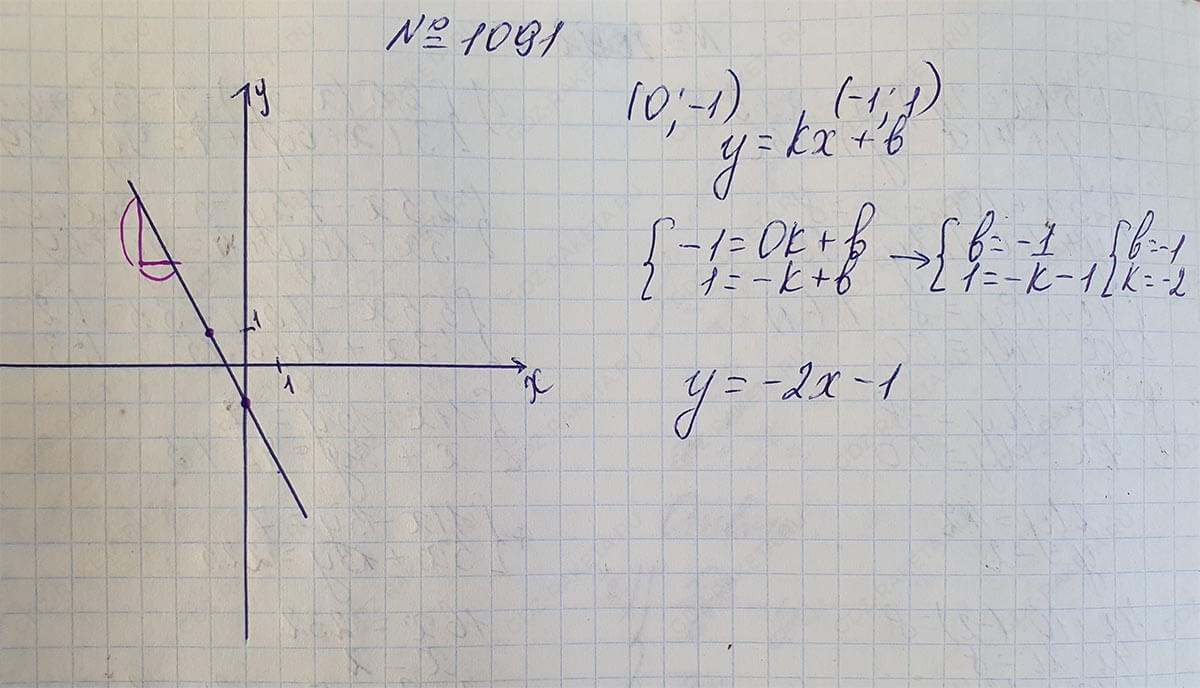 № 1091
y
1
1
x
(0; -1) (-1; 1)
y = kx + b
{ -1 = 0k + b → { b = -1 { b = -1
1 = -k + b 1 = -k - 1 k = -2
y = -2x - 1